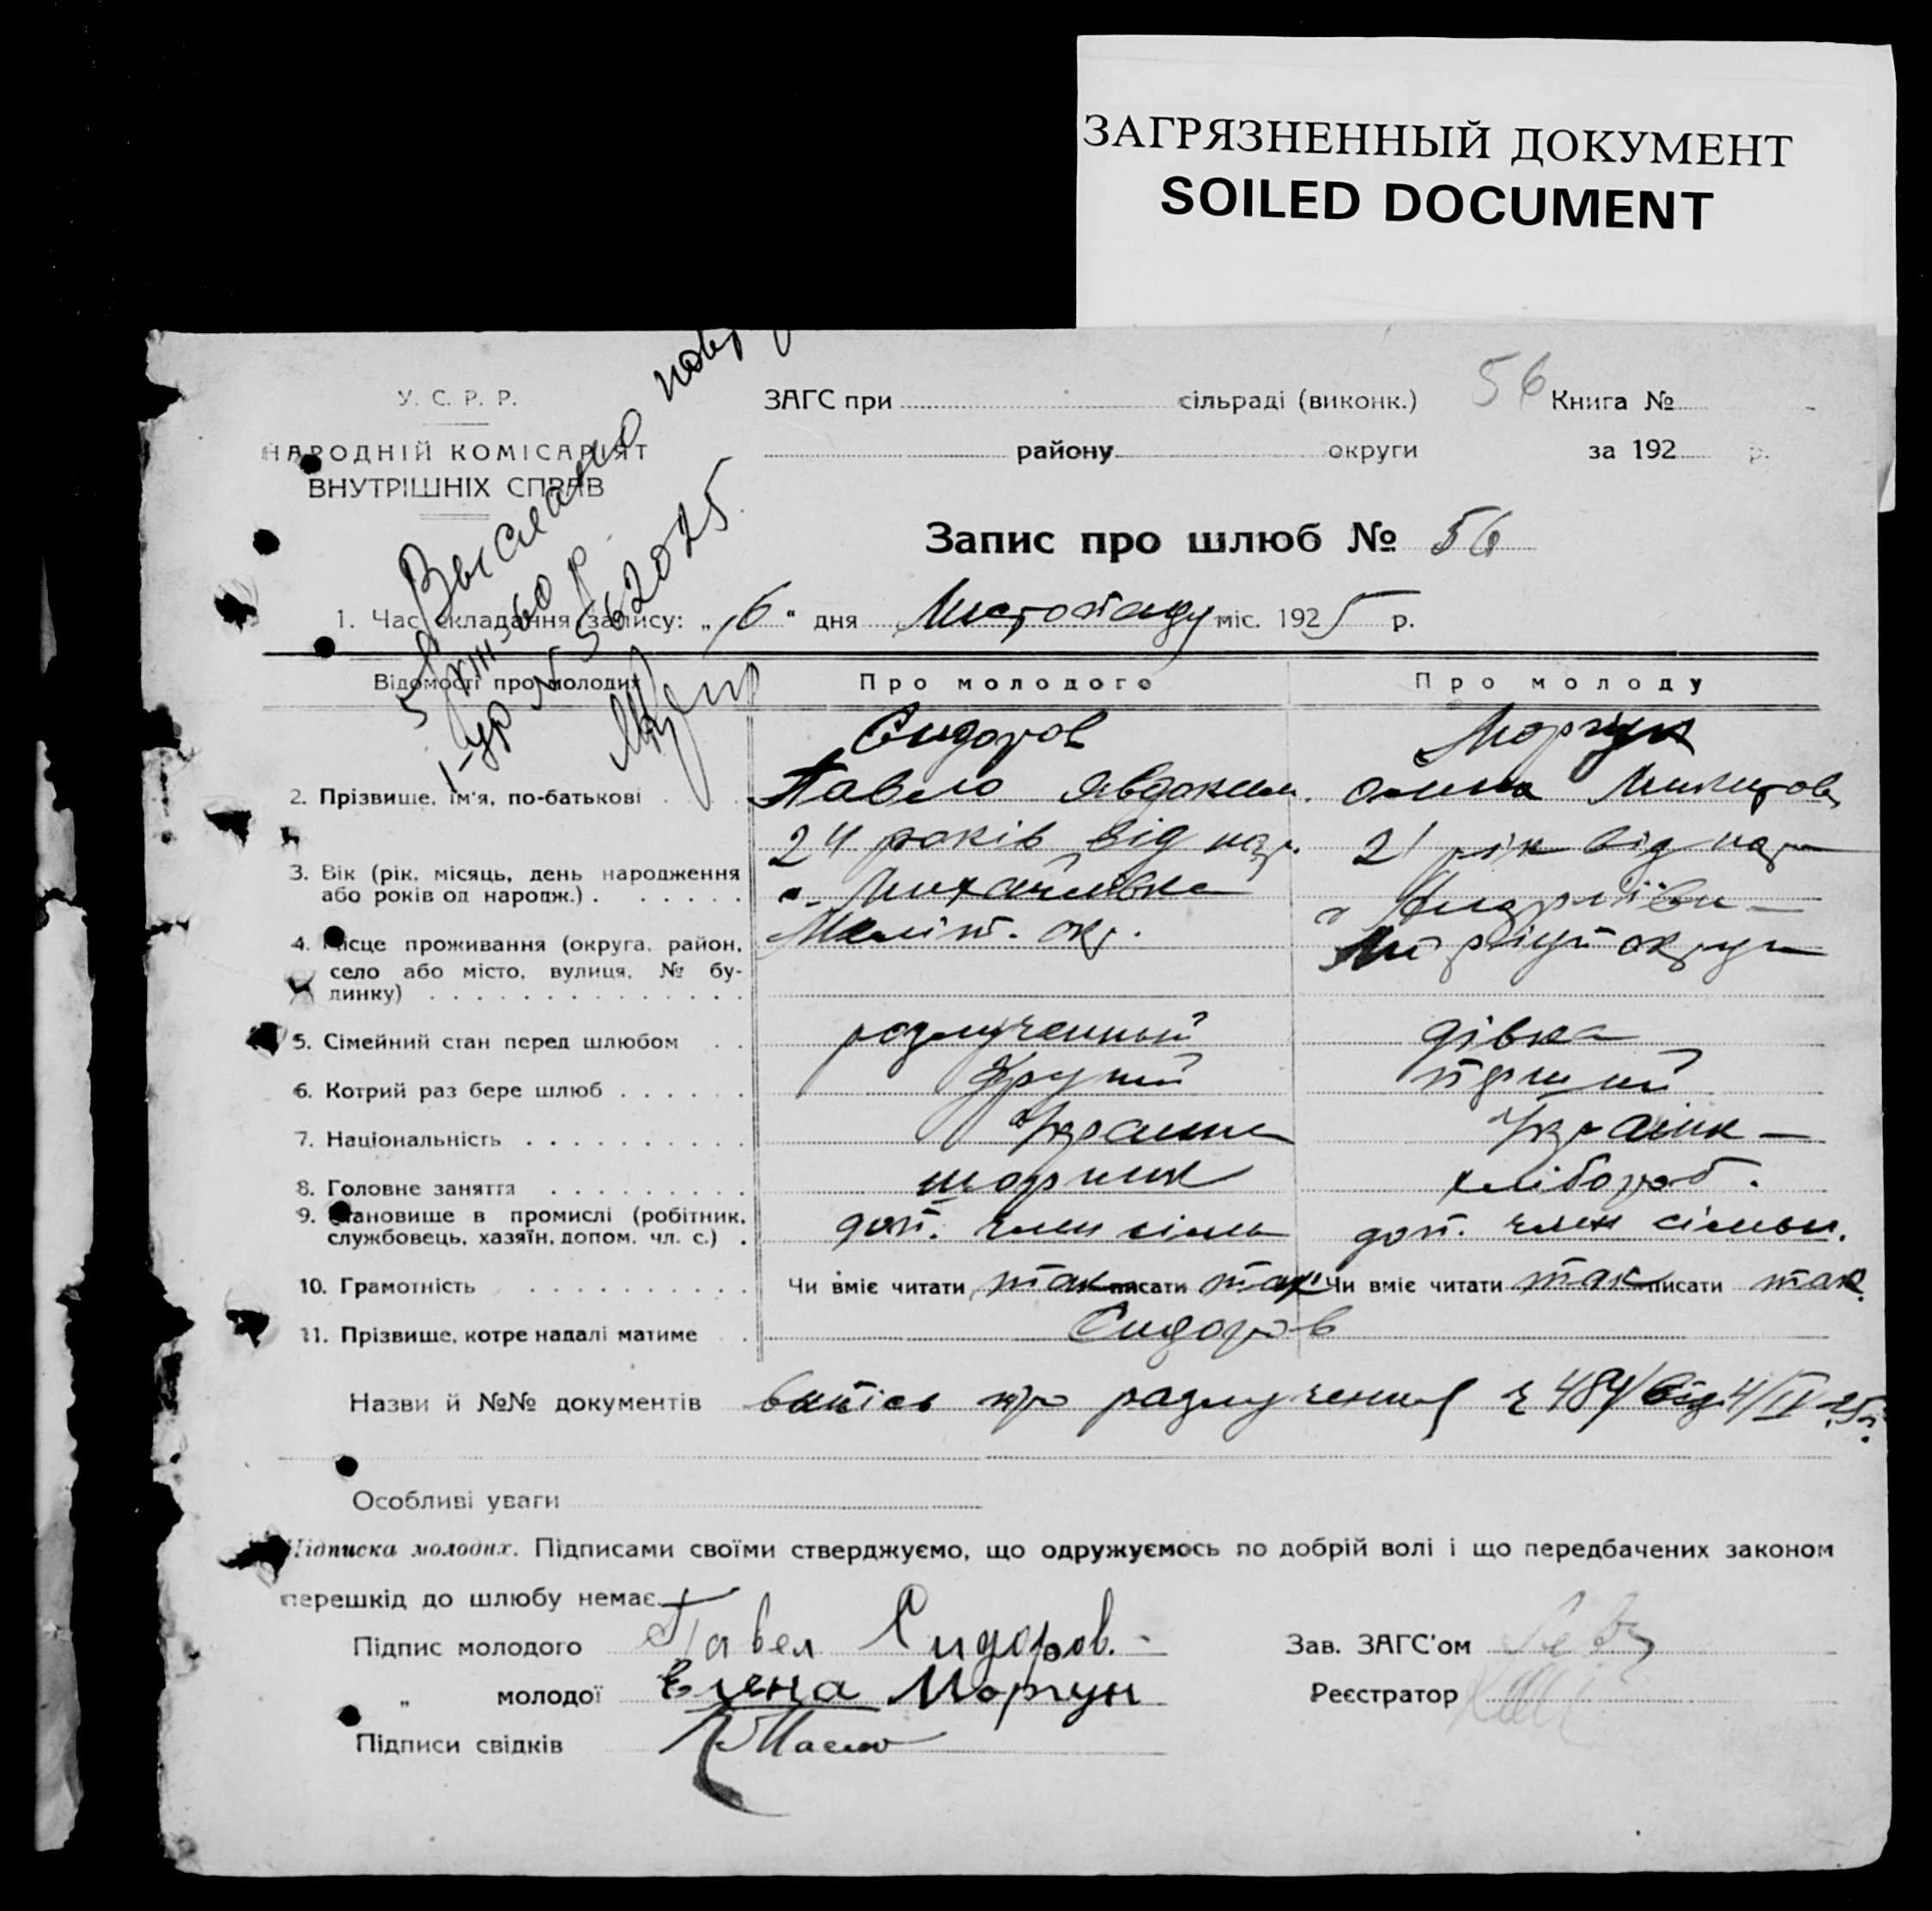 ЗАГРЯЗНЕННЫЙ ДОКУМЕНТ
SOILED DOCUMENT
У. С. Р. Р.
НАРОДНІЙ КОМІСАРІЯТ
ВНУТРІШНІХ СПРАВ
ЗАГС при сільраді (виконк.) 56 Книга №
району округи за 192 р.
Выслано повт
5/XII-60 р.
1-УР № 562025
Запис про шлюб № 56
1. Час складання запису: „6“ дня Листопаду міс. 1925 р.
Відомості про молодих Про молодого Про молоду
Сидоров Моргун
2. Прізвище, ім'я, по-батькові Павло Явдоким. Олена Микитов
3. Вік (рік, місяць, день народження або років од народж.) 24 років від нар. 21 рік від нар
4. Місце проживання (округа, район, село або місто, вулиця, № будинку) Михайлівка Андріївка
Меліт. окр. округи
5. Сімейний стан перед шлюбом розлученный дівка
6. Котрий раз бере шлюб другий перший
7. Національність Украинец Українка
8. Головне заняття хлібороб.
9. Становище в промислі (робітник, службовець, хазяїн, допом. чл. с.) доп. член сімьи доп. член сімьи.
10. Грамотність Чи вміє читати так писати так Чи вміє читати так писати так
11. Прізвище, котре надалі матиме Сидоров
Назви й №№ документів випісь про разлучения ч 484 від 4/II 25 р.
Особливі уваги
Підписка молодих. Підписами своїми стверджуємо, що одружуємось по добрій волі і що передбачених законом
перешкід до шлюбу немає.
Підпис молодого Павел Сидоров. Зав. ЗАГС'ом
„ молодої Елена Моргун Реєстратор
Підписи свідків